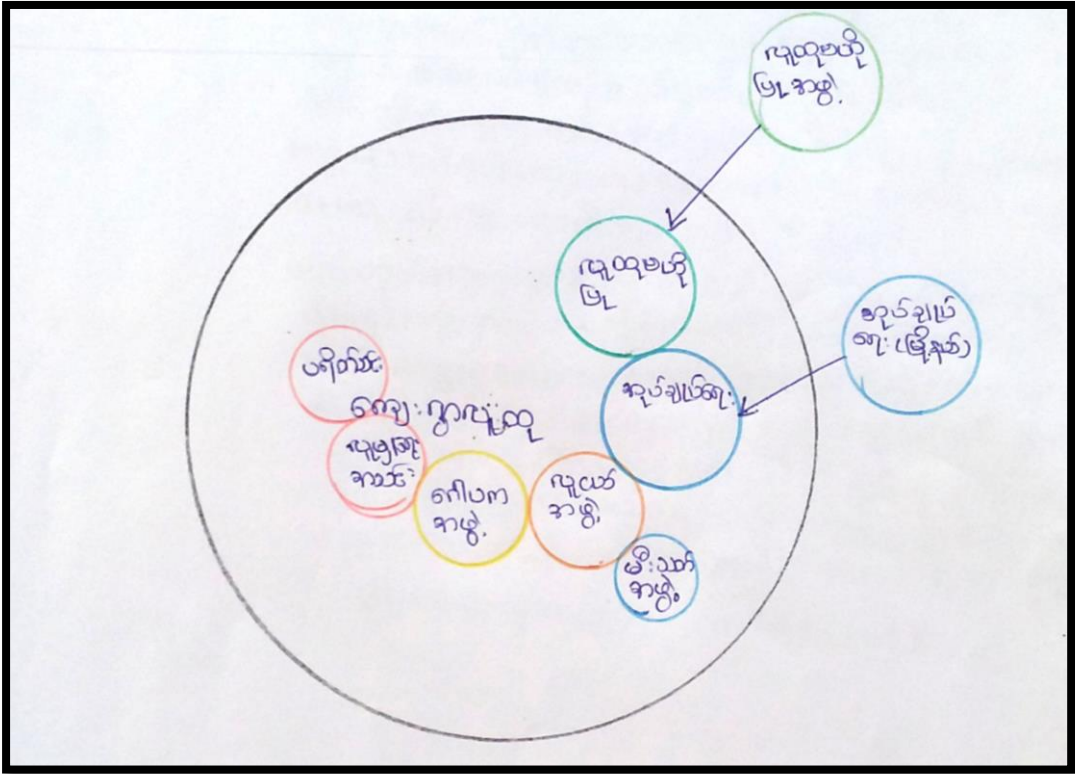 လူထုဗဟို
ပြု အဖွဲ့
လူထုဗဟို
ပြု
အုပ်ချုပ်
ရေး (မြို့နယ်)
အုပ်ချုပ်ရေး
ပရိတ်သင်း
ကျေးရွာလူထု
လူမှုရေး
အသင်း
ဂေါပက
အဖွဲ့
လူငယ်
အဖွဲ့
မီးသတ်
အဖွဲ့